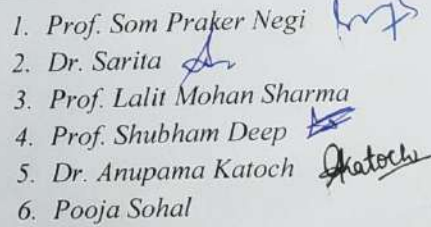 1. Prof. Som Praker Negi
2. Dr. Sarita
3. Prof. Lalit Mohan Sharma
4. Prof. Shubham Deep
5. Dr. Anupama Katoch Akatoch
6. Pooja Sohal